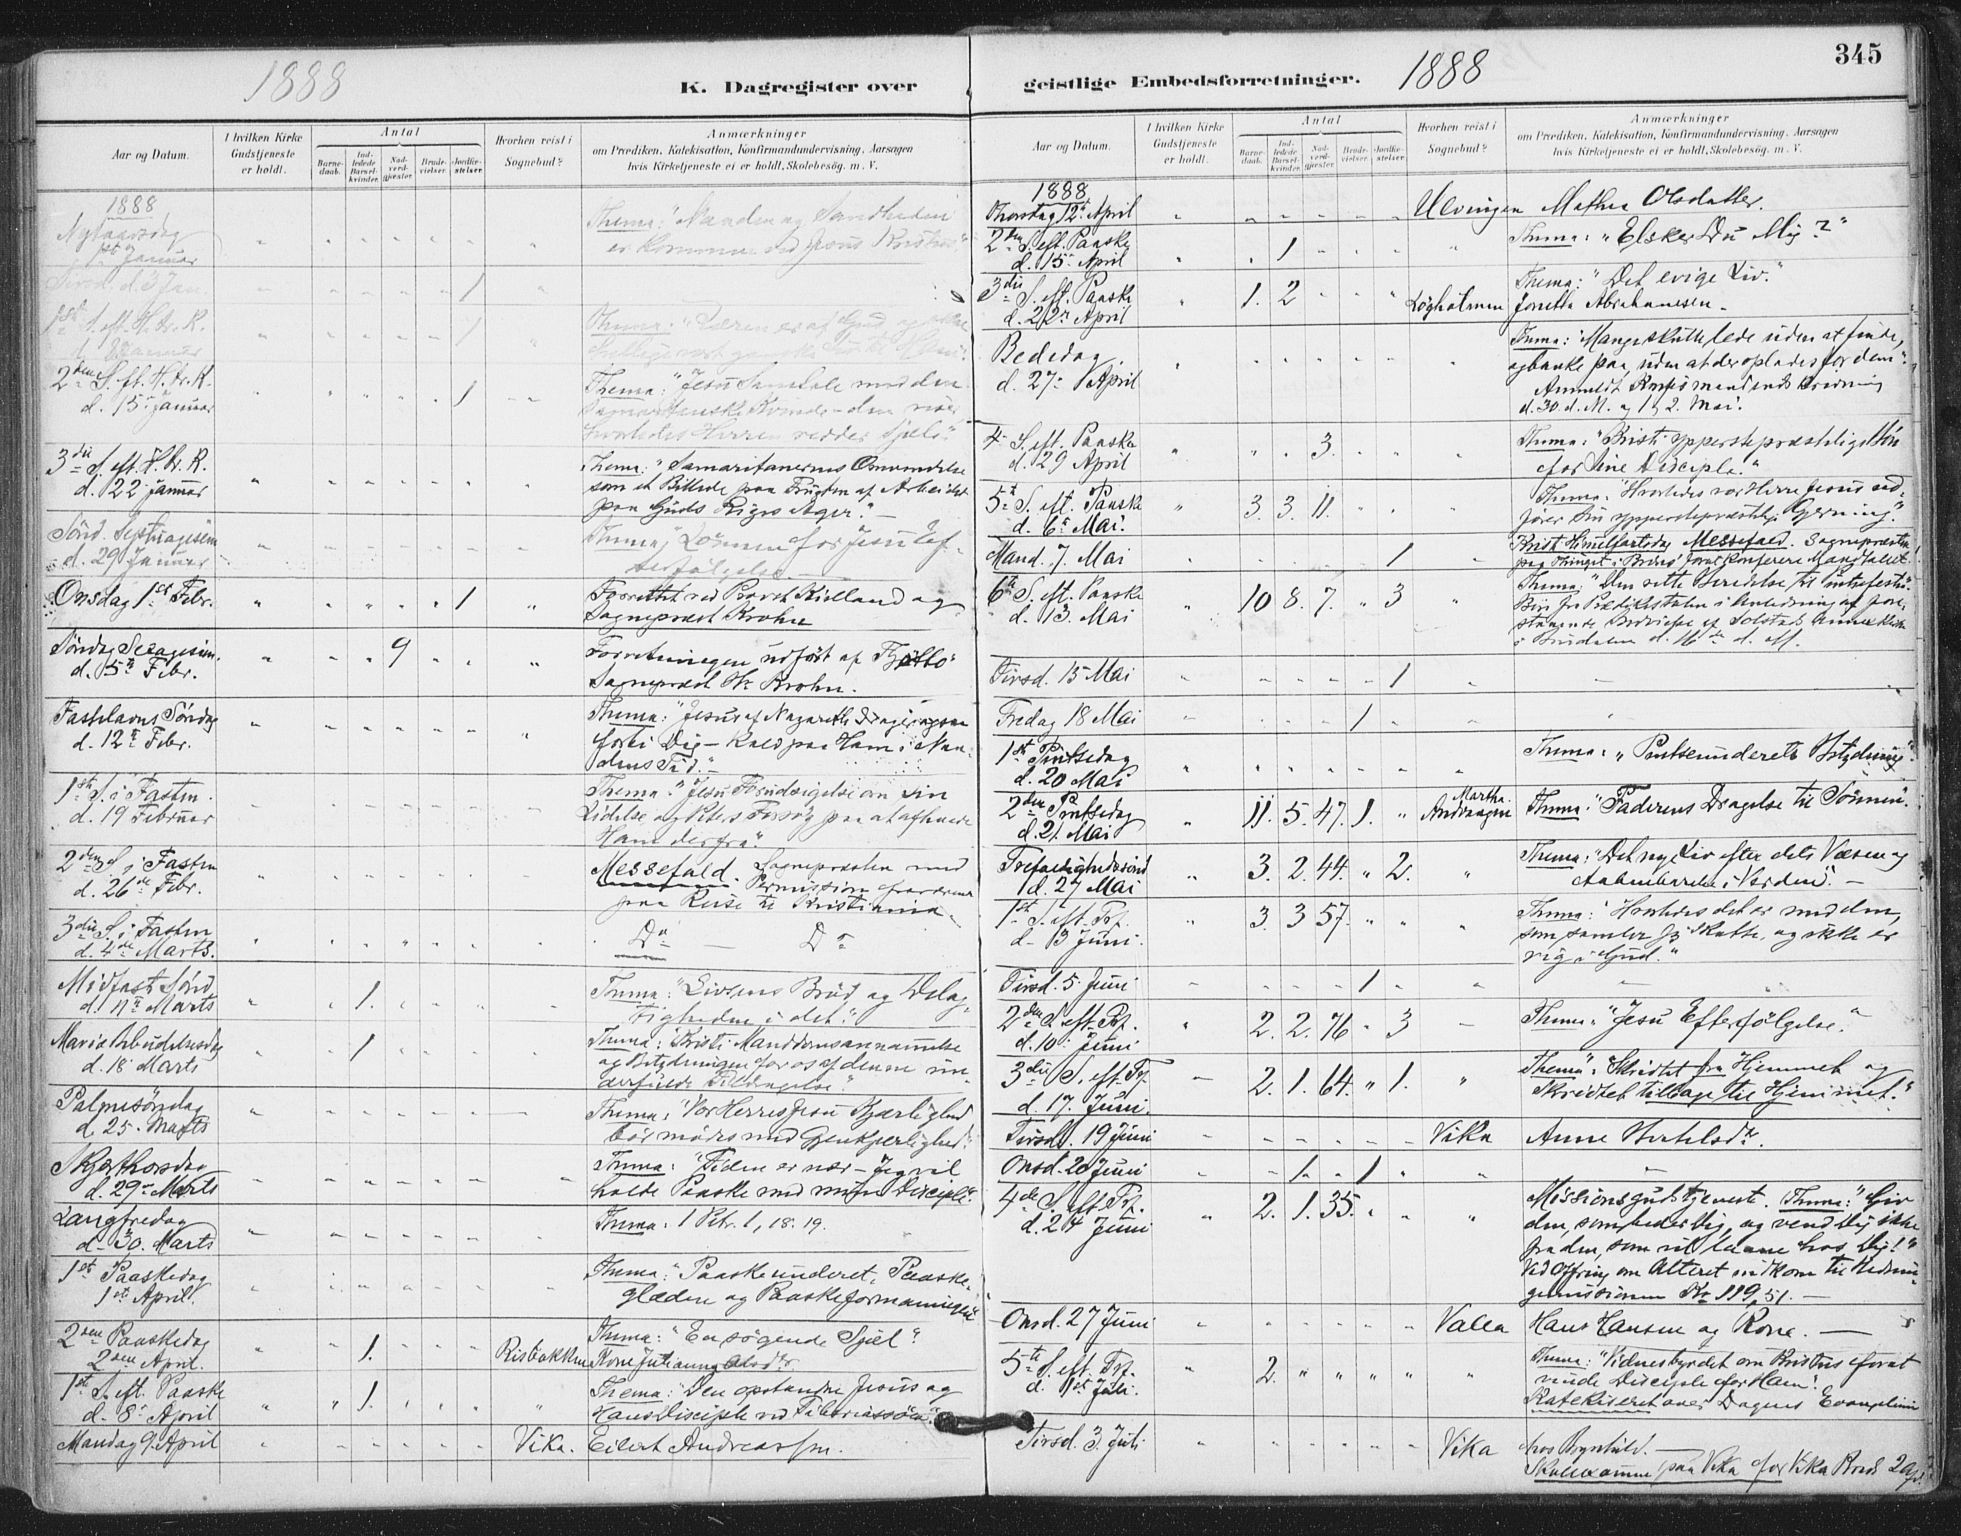 1888
K. Dagregister over
Aar og Datum.
I hvilken Kirke Gudstjeneste er holdt.
Antal
Barnedaab.
Indledede Barselkvinder.
Nadverdgjester.
Brudevielser.
Jordfæstelser.
Hvorhen reist i Sognebud?
Anmærkninger
om Prædiken, Katekisation, Konfirmandundervisning, Aarsagen
hvis Kirketjeneste ei er holdt, Skolebesøg. m. V.
1888
Nytaarsdag
1st Januar
Thema: "Naaden og Sandheden
er kommen ved Jesus Kristus."
Tirsd. d. 3 Jan. 1
1st S. eft. H. tr. K.
d. 8 Januar 1
Thema: "Læren er af Gud
2den S. eft. H. tr. K.
d. 15 Januar 1
Thema: "Jesu Samtale med den
Samaritanske Kvinde - den viser
hvorledes Herren redder Sjæle."
3die S. eft. H. tr. K.
d. 22 Januar
Thema: "Samaritanernes Omvendelse
som et Billede paa Frugten af Arbeidet
paa Guds Riges Ager."
Sönd. Septuagesim
d. 29 Januar
Thema: Lönnen for Jesu Ef-
terfölgelse
Onsdag 1st Febr. 1
Forrettet ved Provst Kielland og
Sogneprest Krohn
Söndag Sexagesim.
d. 5te Febr. 9
Forretningen udført af Tjøtto
Sogneprest Hr Krohn.
Fastelavns Söndag
d. 12te Febr.
Thema: "Jesus af Nazareth drager ogsaa
forbi Dig - Kald paa Ham i Naa-
dens Tid."
1st S. i Fasten.
d. 19 Februar
Thema: "Jesu Forudsigelse om sin
Lidelse og Peters Forsøg paa at afhende
Ham derfra."
2den S. i Fasten
d. 26de Febr.
Messefald. Sognepresten med
Permission fraværende
paa Reise til Kristiania.
3die S. i Fasten
d. 4de Marts.
Do — Do
Midfaste Sönd.
d. 11te Marts 1.
Thema: "Livsens Bröd og Delag-
tigheden i det."
Mariæ Bebudelsesdag
d. 18 Marts 1
Thema: "Kristi Manddomsannammelse
og Betydningen for os af denne un-
derfulde Tildragelse."
Palmesöndag
d. 25. Marts
Thema: "Vor Herres Jesu Kjærlighed
bör mödes med Gjenkjærlighed."
Skjærthorsdag
d. 29 Marts
Thema: "Tiden er nær - Jeg vil
holde Paaske med mine Disciple."
Langfredag
d. 30. Marts
Thema: 1 Petr. 1, 18. 19.
1st Paaskedag
1st April.
Thema: "Paaskeunderet, Paaske-
glæden og Paaskeformaningen
2den Paaskedag
2den April. 1. Risbakken
Thema: "En søgende Sjæl"
Kone Julianna Olsdr.
1st S. eft. Paaske
d. 8 April 1.
Thema: "Den opstandne Jesus og
Hans Disciple ved Tiberiassöen."
Mandag 9 April Vika. Eilert Andreassen.
345
geistlige Embedsforretninger. 1888
Aar og Datum.
I hvilken Kirke Gudstjeneste er holdt.
Antal
Barnedaab.
Indledede Barselkvinder.
Nadverdgjester.
Brudevielser.
Jordfæstelser.
Hvorhen reist i Sognebud?
Anmærkninger
om Prædiken, Katekisation, Konfirmandundervisning, Aarsagen
hvis Kirketjeneste ei er holdt, Skolebesøg. m. V.
1888
Thorsdag 12te April Ulvingen Mathea Olsdatter.
2den S. eft. Paaske
d. 15 April 1
Thema: "Elsker Du Mig?"
3die S. eft. Paaske
d. 22 April 1. 2 Løgholmen
Thema: "Det evige Liv."
Jonetta Abrahamsen
Bededag.
d. 27 April
Thema: "Mange skulle lede uden at finde,
og banke paa, uden at der oplades for dem."
d. 30. d. M. og 1 og 2. Mai.
4 S. eft. Paaske
d. 29 April 3.
Thema: "Kristi ypperstepræstelige Bön
for Sine Disciple."
5te S. eft. Paaske
d. 6 Mai. 3. 3. 11.
Thema: "Hvorledes vor Herre Jesus ud-
fører Sin ypperstepræstelige Gjerning."
Mand. 7. Mai 1
Kristi Himmelfartsdag Messefald. Sognepresten
6te S. eft. Paaske
d. 13. Mai 10 8. 7. 3
Thema: "Den rette Beredelse til Pintsefesten."
Tirsd. 15 Mai 1
Fredag 18 Mai 1
1st Pintsedag
d. 20 Mai
Thema: "Pintseunderets Betydning".
2den Pintsedag
d. 21. Mai 11. 5. 47. 1. Martha Andraagen
Thema: "Faderens Dragelse til Sönnen".
Trefoldighedssönd.
d. 27 Mai 3. 2. 44. 2.
Thema: "Det nye Liv efter dets Væsen og
Aabenbarelse i Verden." —
1st S. eft. Trf.
d. 3 Juni. 3. 3 57.
Thema: "Hvorledes det er med den,
som samler sig Skatte, og ikke er
rig i Gud."
Tirsd. 5. Juni 1
2den S. eft. Trf.
d. 10. Juni 2. 2. 76 3
Thema: "Jesu Efterfölgelse."
3die S. eft. Trf.
d. 17. Juni. 2. 1. 64. 1.
Thema: "Skridtet fra Hjemmet og
Skridtet tilbage til Hjemmet."
Tirsd. 19 Juni Vika Anne
Onsd. 20 Juni 1. 1
4de S. eft. Trf.
d. 24 Juni 2. 1. 35.
Missionsgudstjeneste. Thema: "Giv
den, som beder Dig, og vend Dig ikke
fra den, som vil laane hos Dig!"
Ved Offring om Alteret indkom til Hednin-
gemissionen Kr. 119,51. —
Onsd. 27 Juni Valla Hans Hansen og Kone. —
5te S. eft. Trf.
d. 1st Juli. 2.
Thema: "Vidnesbyrdet om Kristus for at
vinde Disciple for Ham".
Katekiseret over Dagens Evangelium
Tirsd. 3. Juli Vika hos Bynhild. —
Skoleexamen paa Vika for Vika Kreds